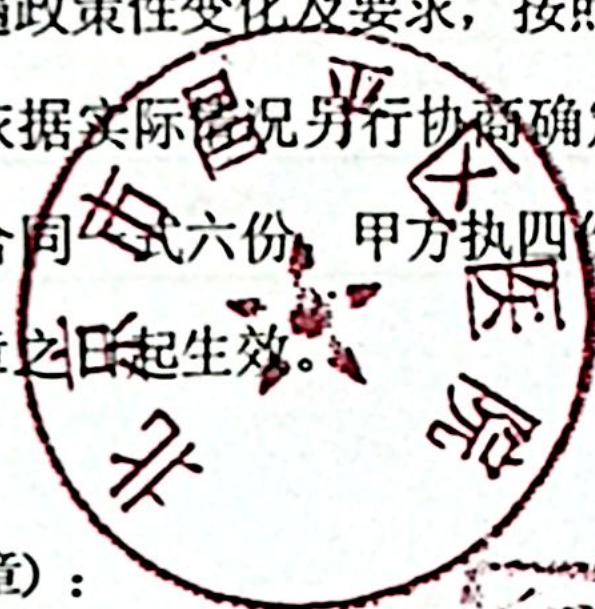 政策性变化及要求，按照
依据实际情况另行协商确定
合同一式六份，甲方执四份
章之日起生效。
章）：
北京市昌平区医院